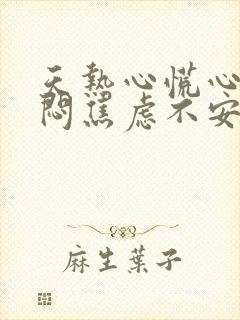 天熱心慌心
悶焦慮不安
麻生葉子